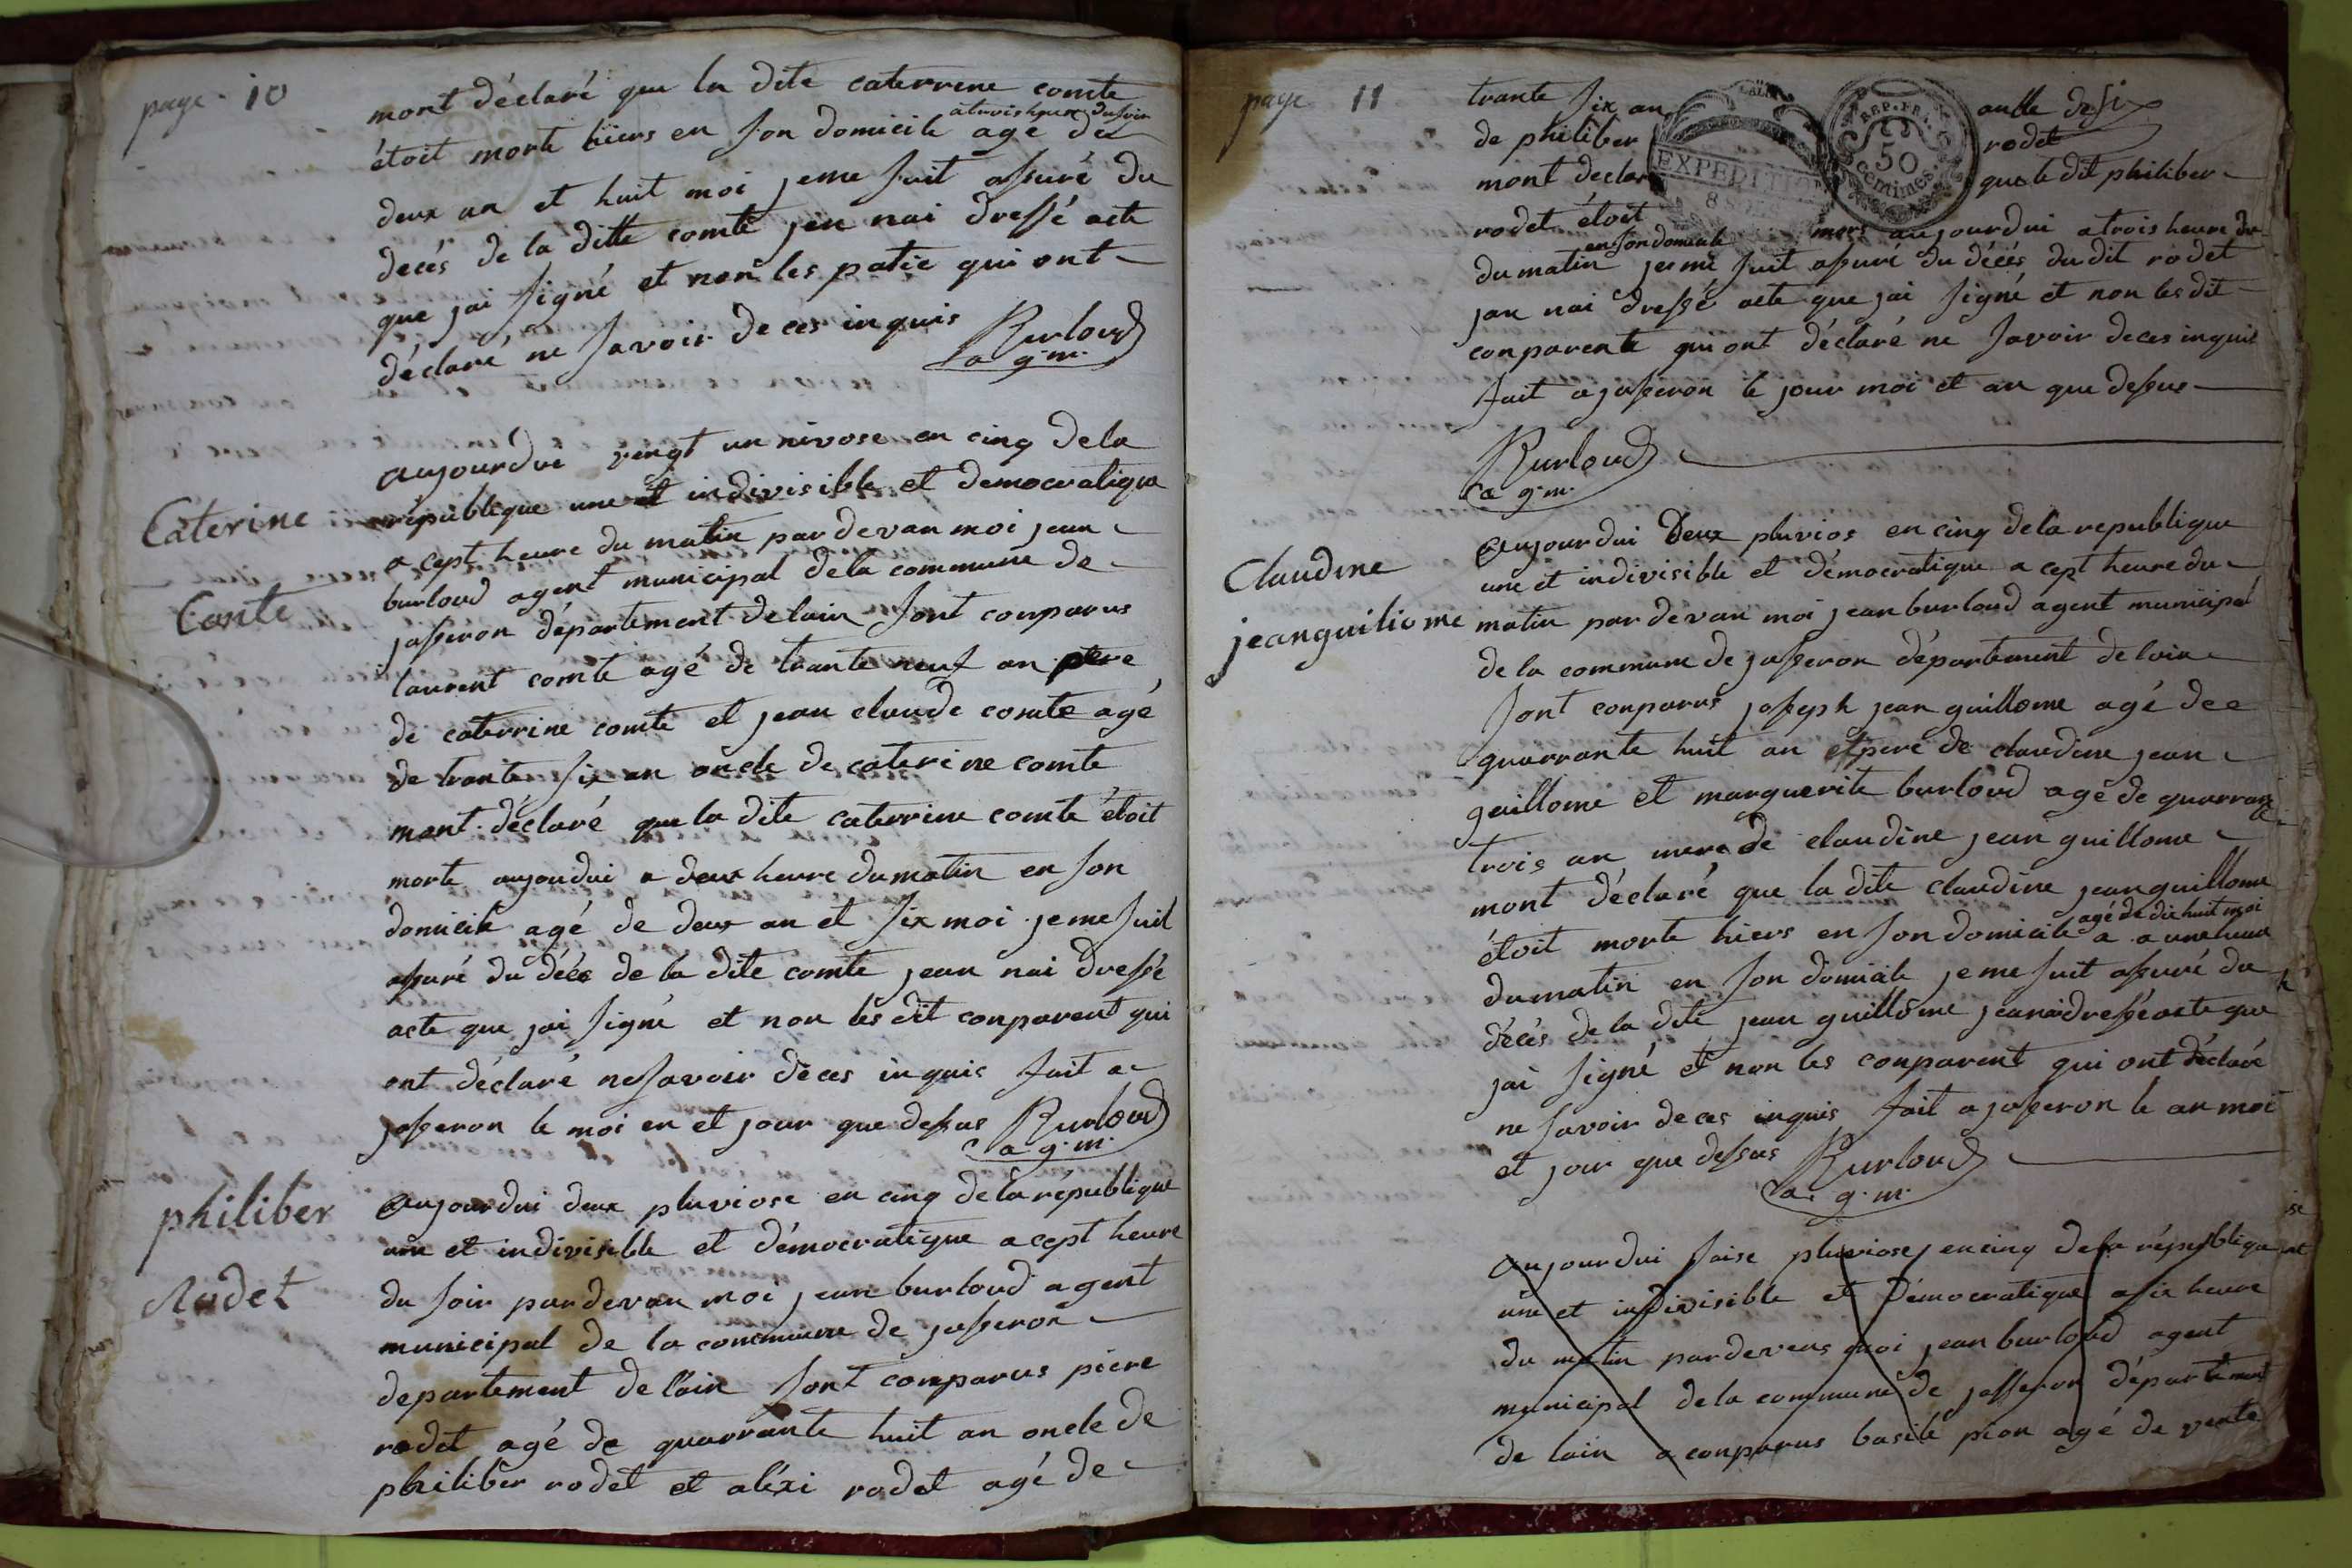 page 10
mont déclaré que la dite caterrine comte
à trois heure du soir
étoit morte hiers en son domicile agé de
deux an et huit moi jeme suit assuré du
decés de la ditte comte jen nai dressé acte
que jai signé et non les patie qui ont
déclaré ne savoir de ces inquis Burloud
a g. m.
aujourdui vingt un nivose en cinq de la
Caterine
république une et indivisible et democratique
a cept heure du matin pardevan moi jean
burloud agent municipal dela commune de
Conte
jasseron département delain sont conparus
laurent comte agé de trante neuf an pere
de caterrine comte et jean claude comte agé
de trante six an oncle de caterine comte
mont déclaré que la dite caterrine comte étoit
morte aujoudui a deux heure dumatin en son
domicile agé de deux an et six moi jeme suit
assuré du déés de la dite comte jean nai dressé
acte que jai signé et non les dit conparent qui
ont déclaré ne savoir de ces inquis fait a
jasseron le moi en et jour que dessus Burloud
a g. m.
philiber
aujourdui deux pluviose en cinq de la république
une et indivisible et démocratique a cept heure
Rodet
du soir pardevan moi jean burloud agent
municipal de la commune de jasseron
departement de lain sont comparus piere
rodet agé de quarrante huit an oncle de
philiber rodet et aléxi rodet agé de
page 11
trante six an oncle desi
de philiber rodet
mont declar que le dit philiber
rodet étoit mors aujourdui a trois heure du
en son domicile
du matin jeme suit assuré du décés du dit rodet
jan nai dressé acte que jai signé et non les dit
conparente qui ont déclaré ne savoir de ces inquis
fait a jasseron le jour moi et an que dessus
Burloud
a g. m.
EXPEDITION
REP. FRA.
50
centimes.
aujourdui Deux pluvios en cinq dela republique
Claudine
une et indivisible et démocratique a cept heure du
jeanguiliome
matin pardevan moi jean burloud agent municipal
de la commune de jasseron département de lain
sont conparus joseph jean guillome agé dee
quarrante huit an et pere de claudine jean
guillome et marguerite burloud agé de quarrante
trois an mere de claudine jean guillome
mont déclaré que la dite claudine jeanguillome
agé de dix huit moi
étoit morte hiers en son domicile a a une heure
dumatin en son domicile jeme suit assuré du
décés de la dite jean guillome jeanai dressé acte que
jai signé et non les conparent qui ont déclaré
ne savoir de ces inquis fait a jasseron le an moi
et jour que dessus Burloud
a. g. m.
aujourdui saise pluviose en cinq de la république
une et indivisible et démocratique a six heure
du matin pardevens moi jean burloud agent
municipal dela commune de jasseron département
de lain a conparus basile pion agé de vente